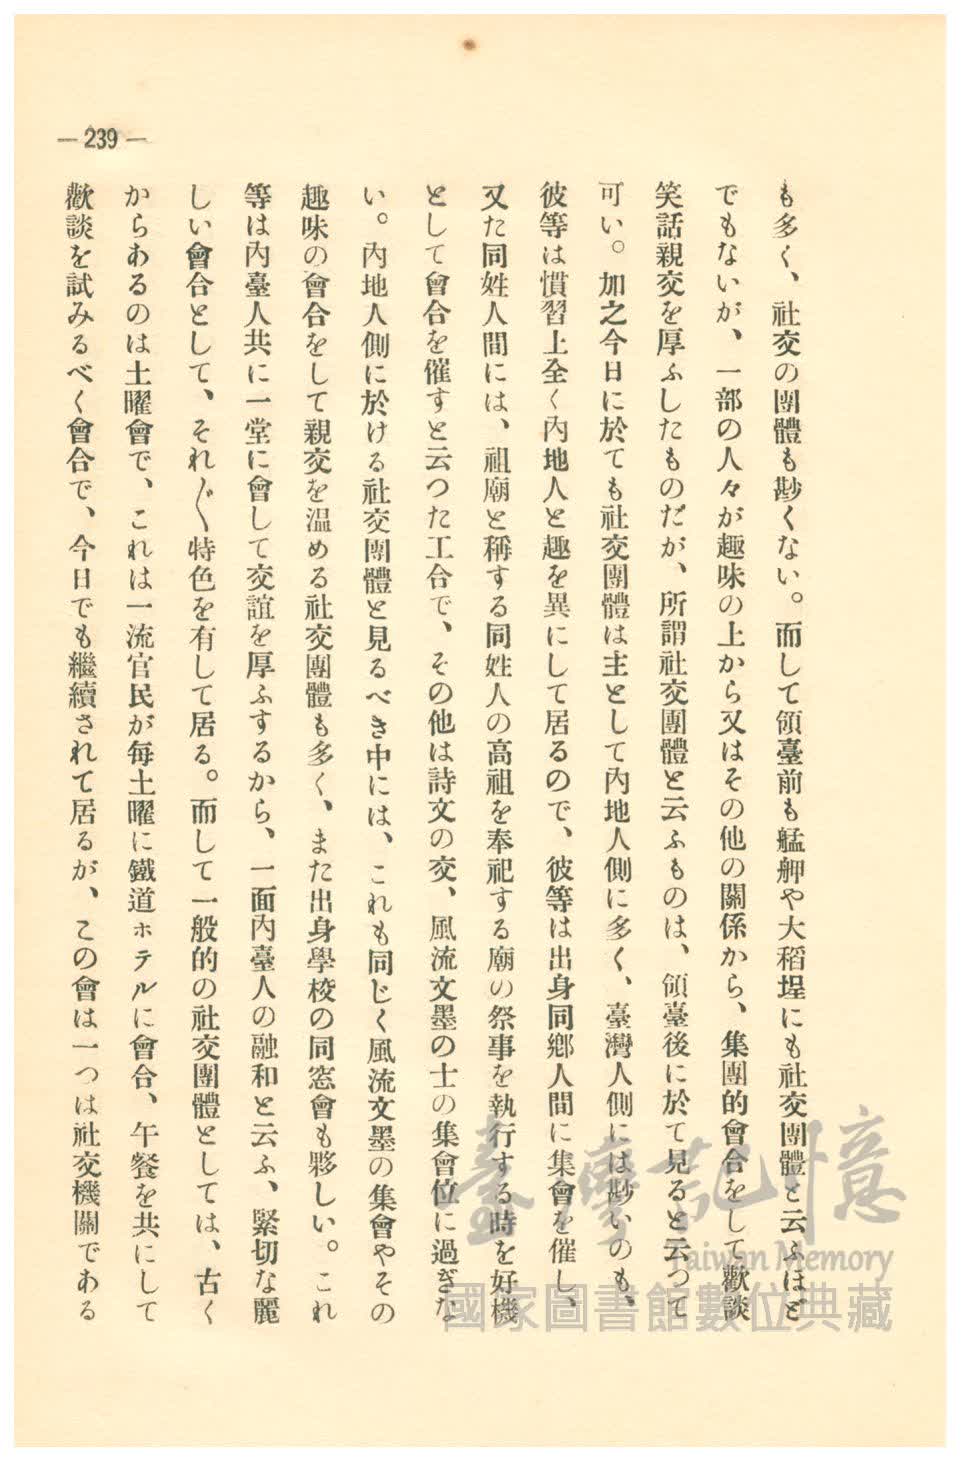 — 239 —
も多く、社交の團體も尠くない。而して領臺前も艋舺や大稻埕にも社交團體と云ふほど
でもないが、一部の人々が趣味の上から又はその他の關係から、集團的會合をして歡談
笑話親交を厚ふしたものだが、所謂社交團體と云ふものは、領臺後に於て見ると云つて
可い。加之今日に於ても社交團體は主として內地人側に多く、臺灣人側には尠いのも、
彼等は慣習上全く內地人と趣を異にして居るので、彼等は出身同鄕人間に集會を催し、
又た同姓人間には、祖廟と稱する同姓人の高祖を奉祀する廟の祭事を執行する時を好機
として會合を催すと云つた工合で、その他は詩文の交、風流文墨の士の集會位に過ぎな
い。內地人側に於ける社交團體と見るべき中には、これも同じく風流文墨の集會やその
趣味の會合をして親交を溫める社交團體も多く、また出身學校の同窓會も夥しい。これ
等は內臺人共に一堂に會して交誼を厚ふするから、一面內臺人の融和と云ふ、緊切な麗
しい會合として、それ〴〵特色を有して居る。而して一般的の社交團體としては、古く
からあるのは土曜會で、これは一流官民が每土曜に鐵道ホテルに會合、午餐を共にして
歡談を試みるべく會合で、今日でも繼續されて居るが、この會は一つは社交機關である
臺灣記憶
Taiwan Memory
國家圖書館數位典藏